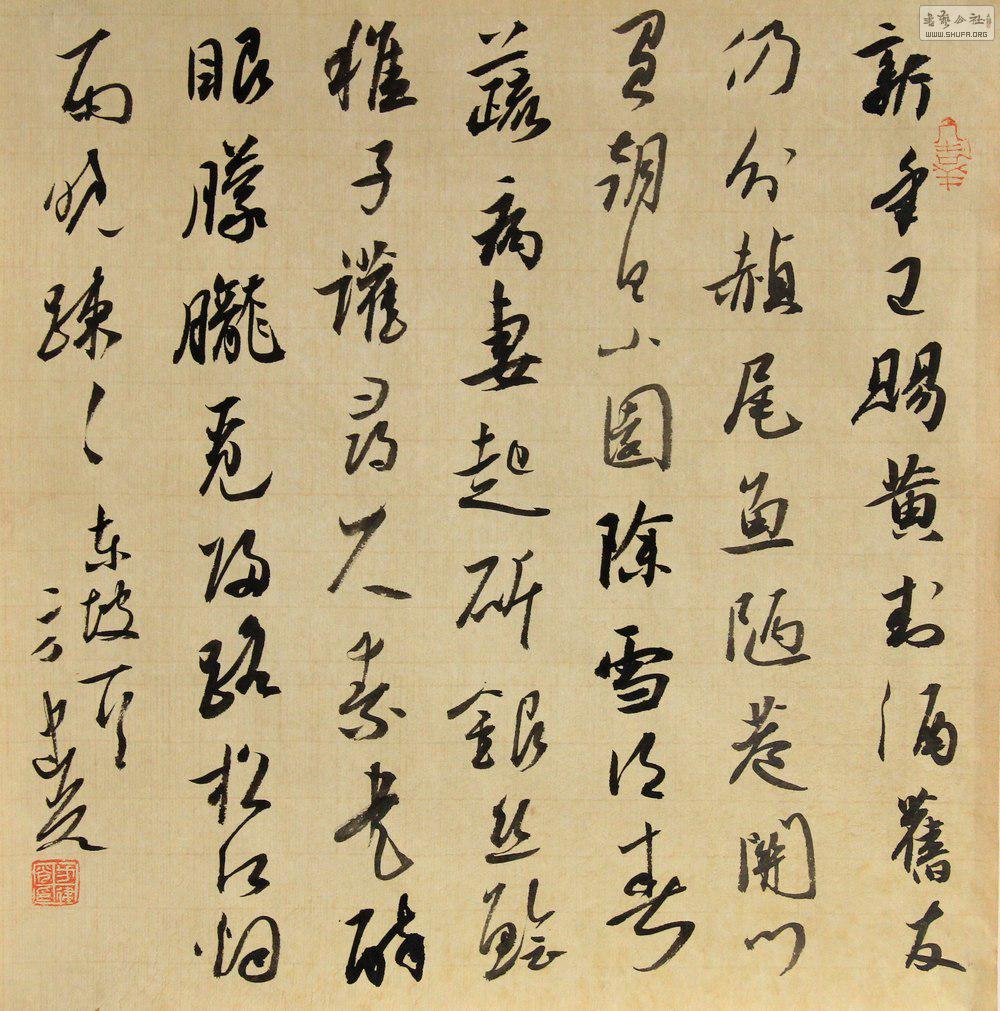 書藝公社
WWW.SHUFA.ORG
新年已賜黃封酒舊友
仍分赬尾魚陋巷開門
負朝日小園除雪得春
蔬病妻起斫銀絲鱠
稚子讙尋尺素書醉
眼朦朧覓歸路松江烟
雨晚疎〻
東坡